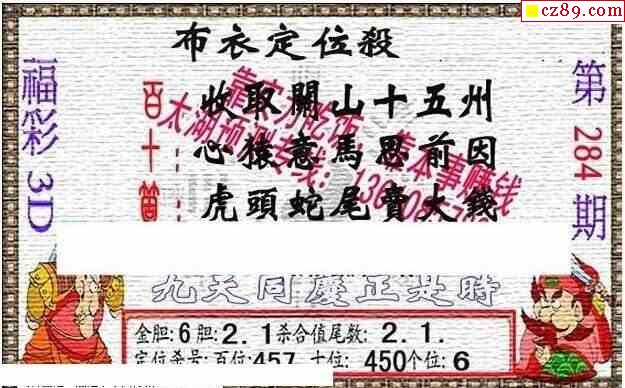 cz89.com
布衣定位殺
福彩 3D
第 284 期
百 十 箇
收取關山十五州
心猿意馬思前因
虎頭蛇尾賣大錢
九天同慶正是時
金胆:6 胆:2.1 杀合值尾数:2.1.
定位杀号:百位:457 十位:450 个位:6